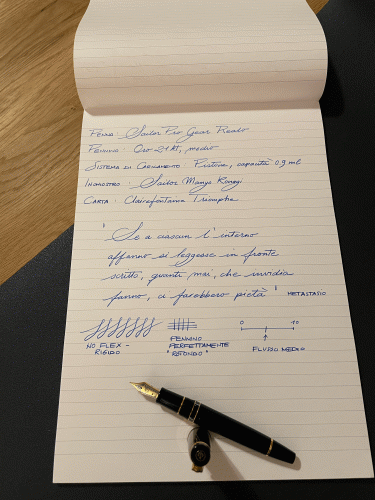 Penna: Sailor Pro Gear Realo
Pennino: Oro 21 Kt, medio
Sistema di caricamento: Pistone, capacità 0,9 ml
Inchiostro: Sailor Manyo
Carta: Clairefontaine Triomphe
"Se a ciascun l'interno
affanno si leggesse in fronte
scritto, quanti mai, che invidia
fanno, ci farebbero pietà" METASTASIO
NO FLEX -
RIGIDO
PENNINO
PERFETTAMENTE
"ROTONDO"
0 10
FLUSSO MEDIO